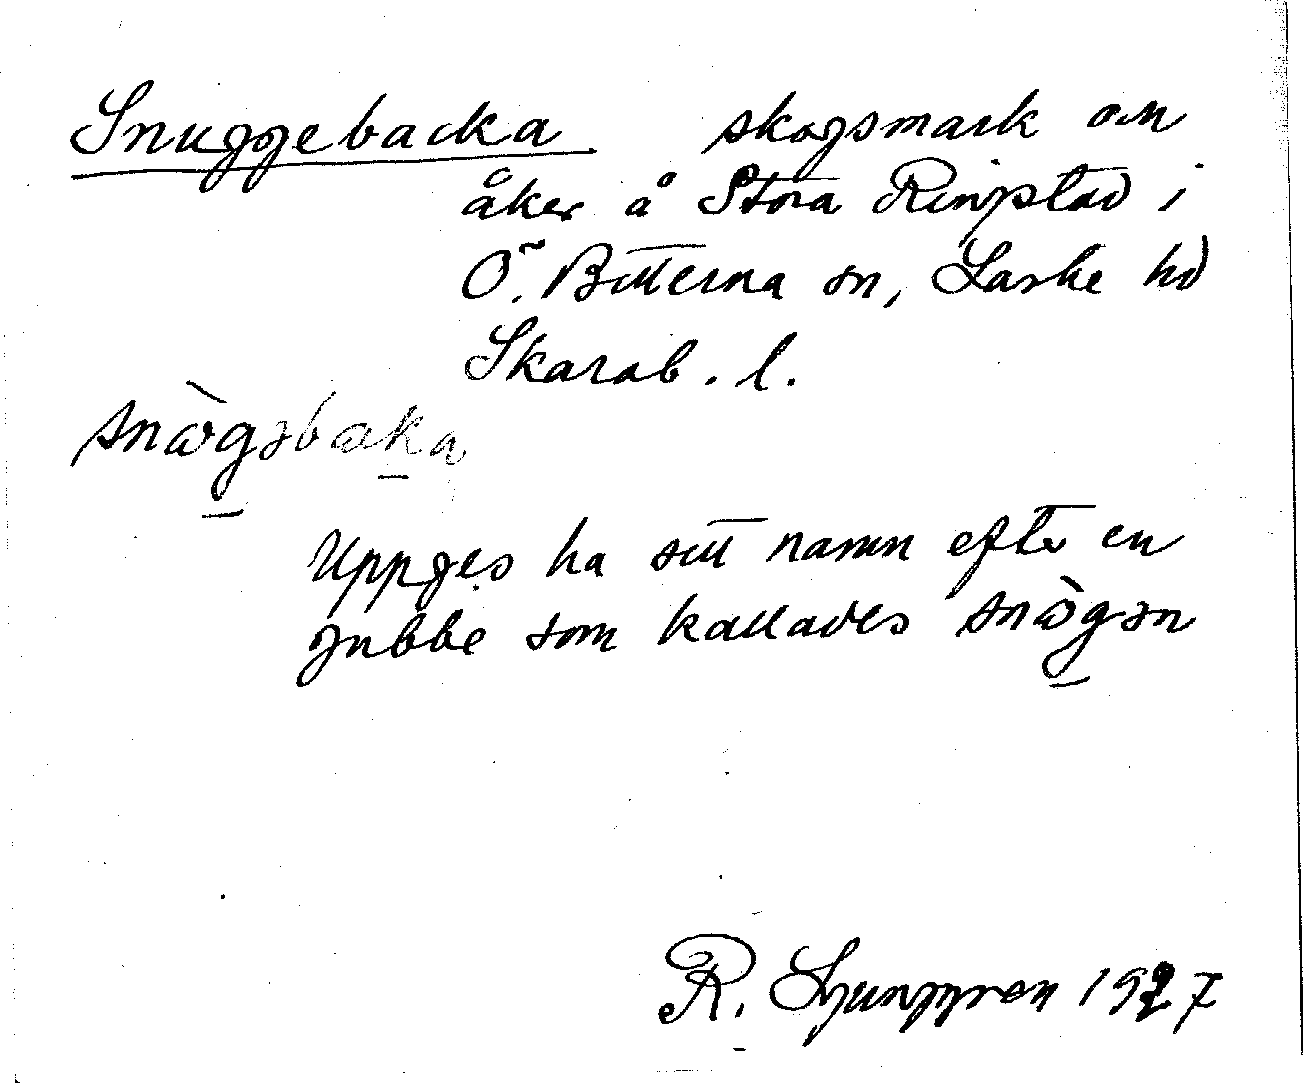 Snuggebacka. skogsmark om
åker å Stora Ringstad i
Ö. Bitterna sn, Laske hd
Skarab. l.
snògəbaka
Uppges ha sitt namn efter en
gubbe som kallades snògən
R. Ljunggren 1927